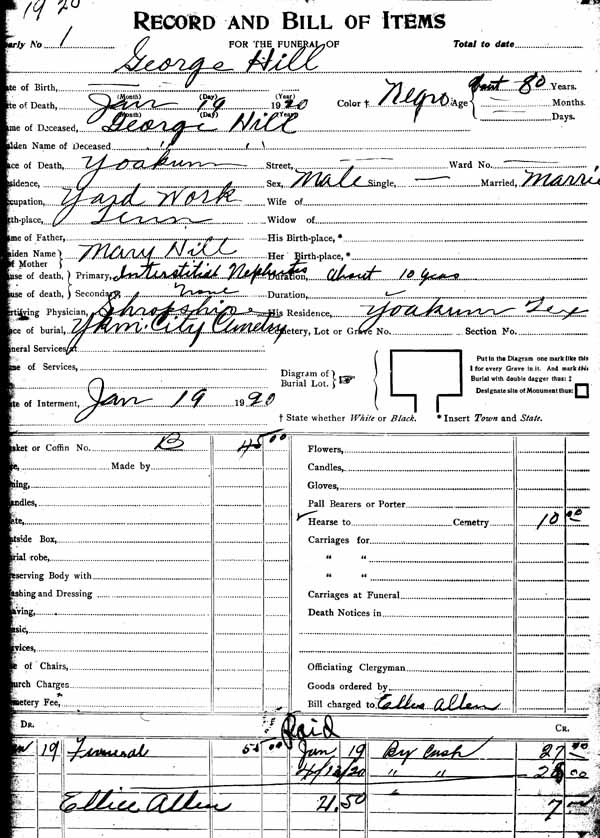 1920
RECORD AND BILL OF ITEMS
FOR THE FUNERAL OF
early No 1 Total to date
George Hill
te of Birth, (Month) (Day) (Year) 80 Years.
te of Death, Jan 19 1920 Color † Negro Age Months.
(Month) (Day) (Year) Days.
me of Deceased, George Hill
iden Name of Deceased " "
ce of Death, Yoakum Street, Ward No.
sidence, Sex, Male Single, — Married, Marrie
cupation, Yard Work Wife of
rth-place, Tenn Widow of
me of Father, His Birth-place, *
aiden Name of Mother Mary Hill Her Birth-place, *
use of death, Primary, Interstitial Nephritis Duration, About 10 years
use of death, Secondary None Duration,
rtifying Physician, Shropshire His Residence, Yoakum Tex
ce of burial, Ykm. City Cemetry Cemetery, Lot or Grave No. Section No.
neral Services at
e of Services,
te of Interment, Jan 19 1920
Diagram of Burial Lot. ☞
Put in the Diagram one mark like this
I for every Grave in it. And mark this
Burial with double dagger thus: ‡
Designate site of Monument thus: □
† State whether White or Black. * Insert Town and State.
sket or Coffin No. B 45 00 Flowers,
e, Made by Candles,
ning, Gloves,
ndles, Pall Bearers or Porter
ate, ✓ Hearse to Cemetry 10 00
tside Box, Carriages for
rial robe, " "
eserving Body with " "
ashing and Dressing Carriages at Funeral
aving, Death Notices in
usic,
rvices,
e of Chairs, Officiating Clergyman
urch Charges Goods ordered by
metery Fee, Bill charged to Ellis Allen
DR. Paid CR.
Jan 19 Funeral 55 00 Jan 19 By Cash 27 00
4/12/20 " " 28 00
Ellice Allen 21.50